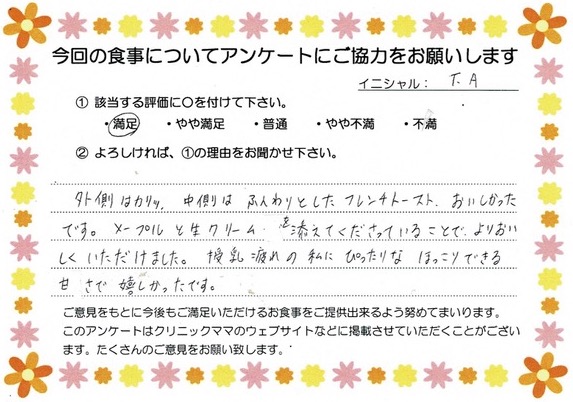 今回の食事についてアンケートにご協力をお願いします
イニシャル： T. A
① 該当する評価に○を付けて下さい。
・満足 ・やや満足 ・普通 ・やや不満 ・不満
② よろしければ、①の理由をお聞かせ下さい。
外側はカリッ、中側はふんわりとしたフレンチトースト、おいしかった
です。メープルと生クリームを添えてくださっていることで、よりおい
しくいただけました。授乳疲れの私にぴったりなほっこりできる
甘さで嬉しかったです。
ご意見をもとに今後もご満足いただけるお食事をご提供出来るよう努めてまいります。
このアンケートはクリニックママのウェブサイトなどに掲載させていただくことがござい
ます。たくさんのご意見をお願い致します。